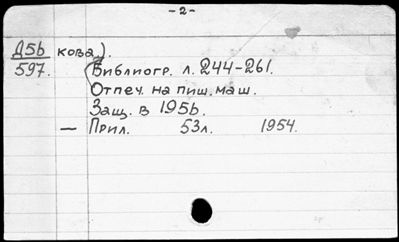 -2-
Д56 кова).
597. Библиогр. л. 244-261.
Отпеч. на пиш. маш.
Защ. в 1956.
— Прил. 53л. 1954.